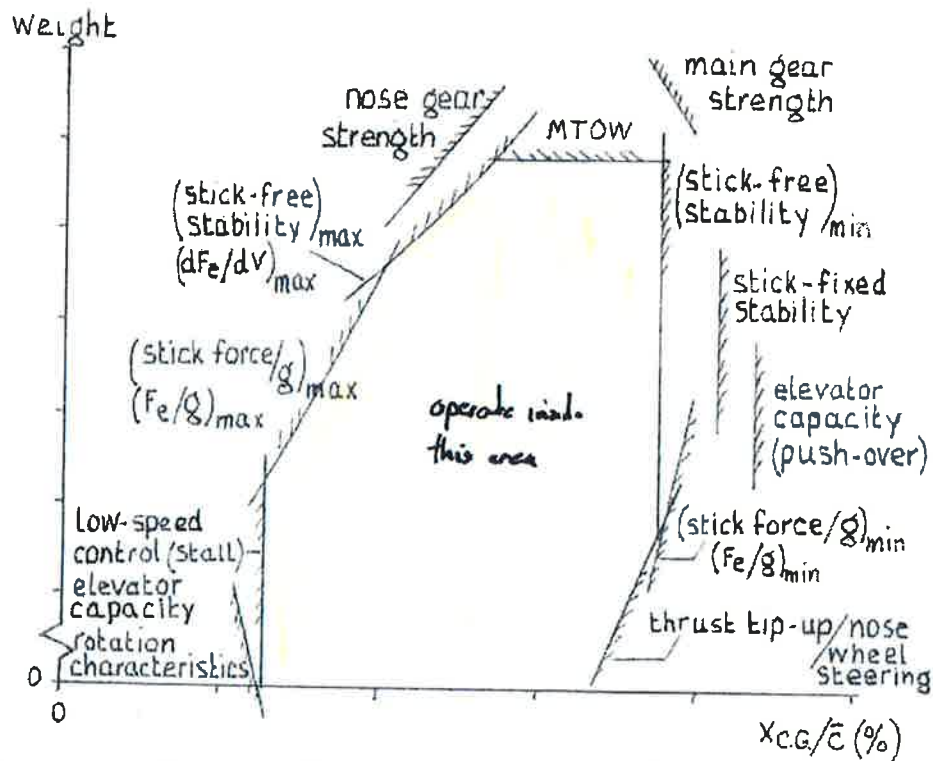 Weight
main gear
strength
nose gear
strength
MTOW
(stick-free
stability)max
(dFe/dV)max
(stick-free
stability)min
stick-fixed
stability
(stick force/g)max
(Fe/g)max
operate inside
this area
elevator
capacity
(push-over)
low-speed
control (stall)
elevator
capacity
rotation
characteristics
(stick force/g)min
(Fe/g)min
thrust tip-up/nose
wheel
steering
0
0
XC.G./c̄ (%)